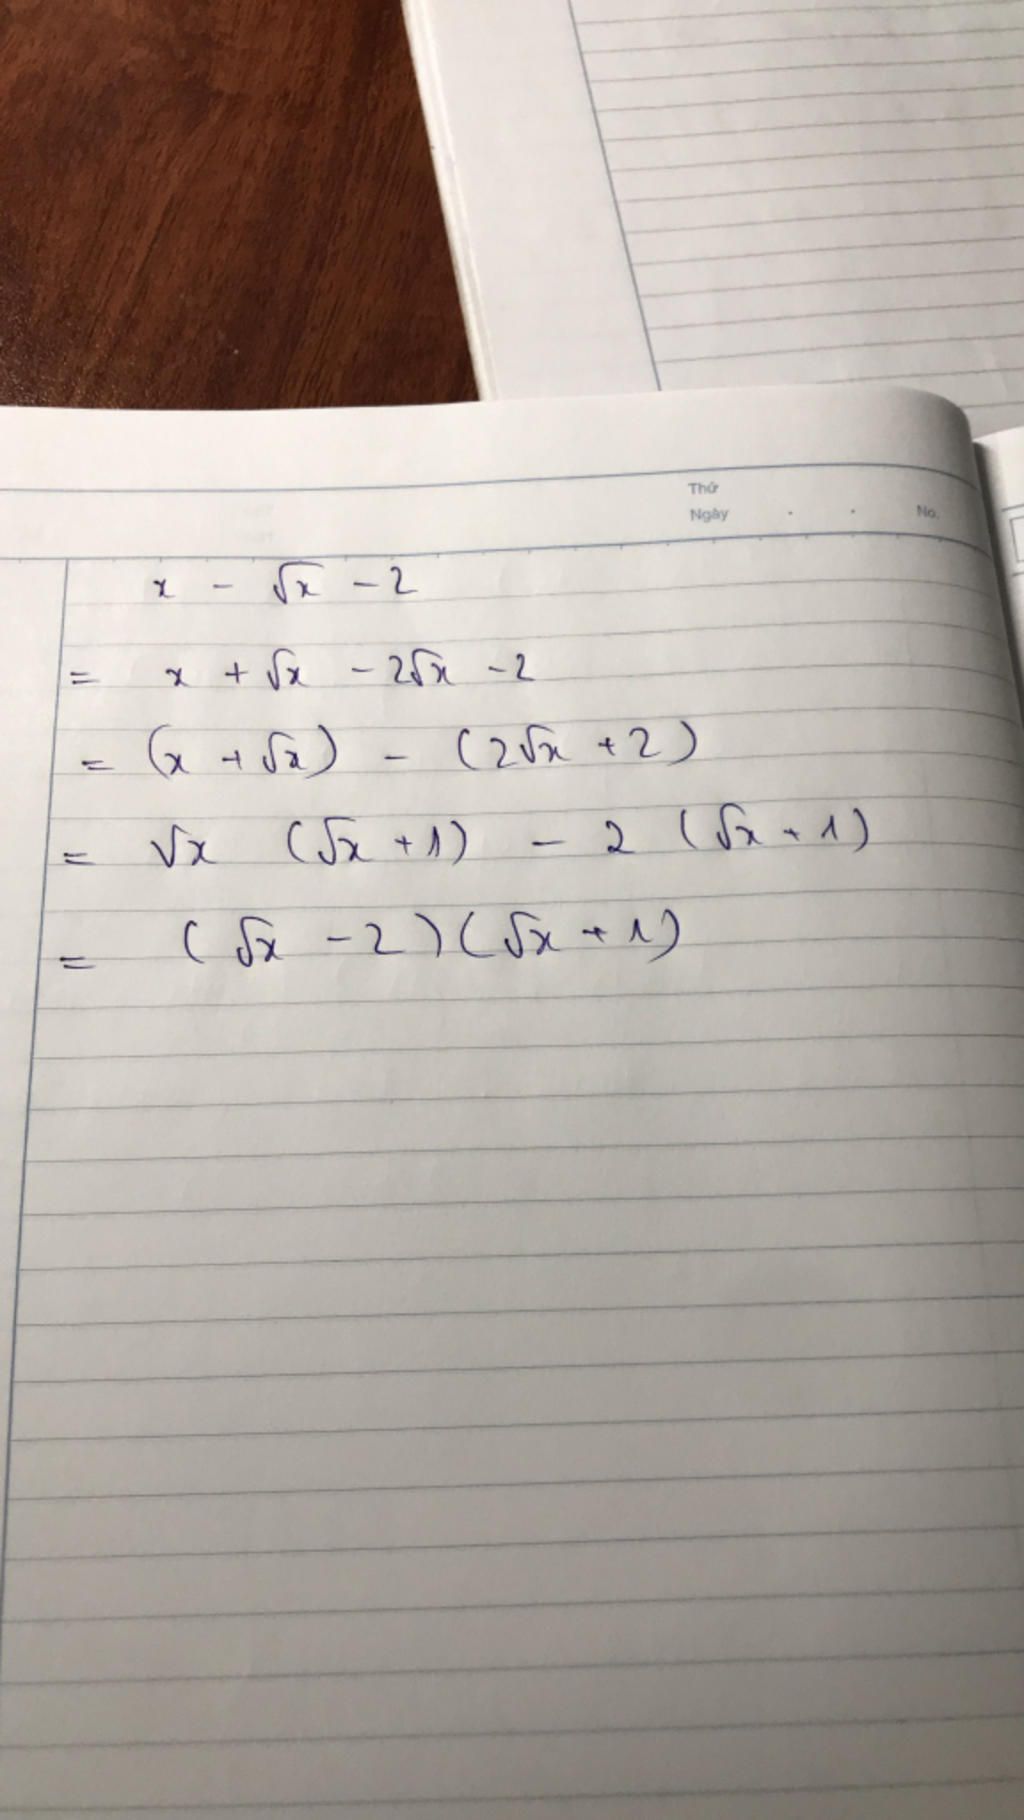 Thứ
Ngày . . No.
x - √x - 2
= x + √x - 2√x - 2
= (x + √x) - (2√x + 2)
= √x (√x + 1) - 2 (√x + 1)
= (√x - 2)(√x + 1)